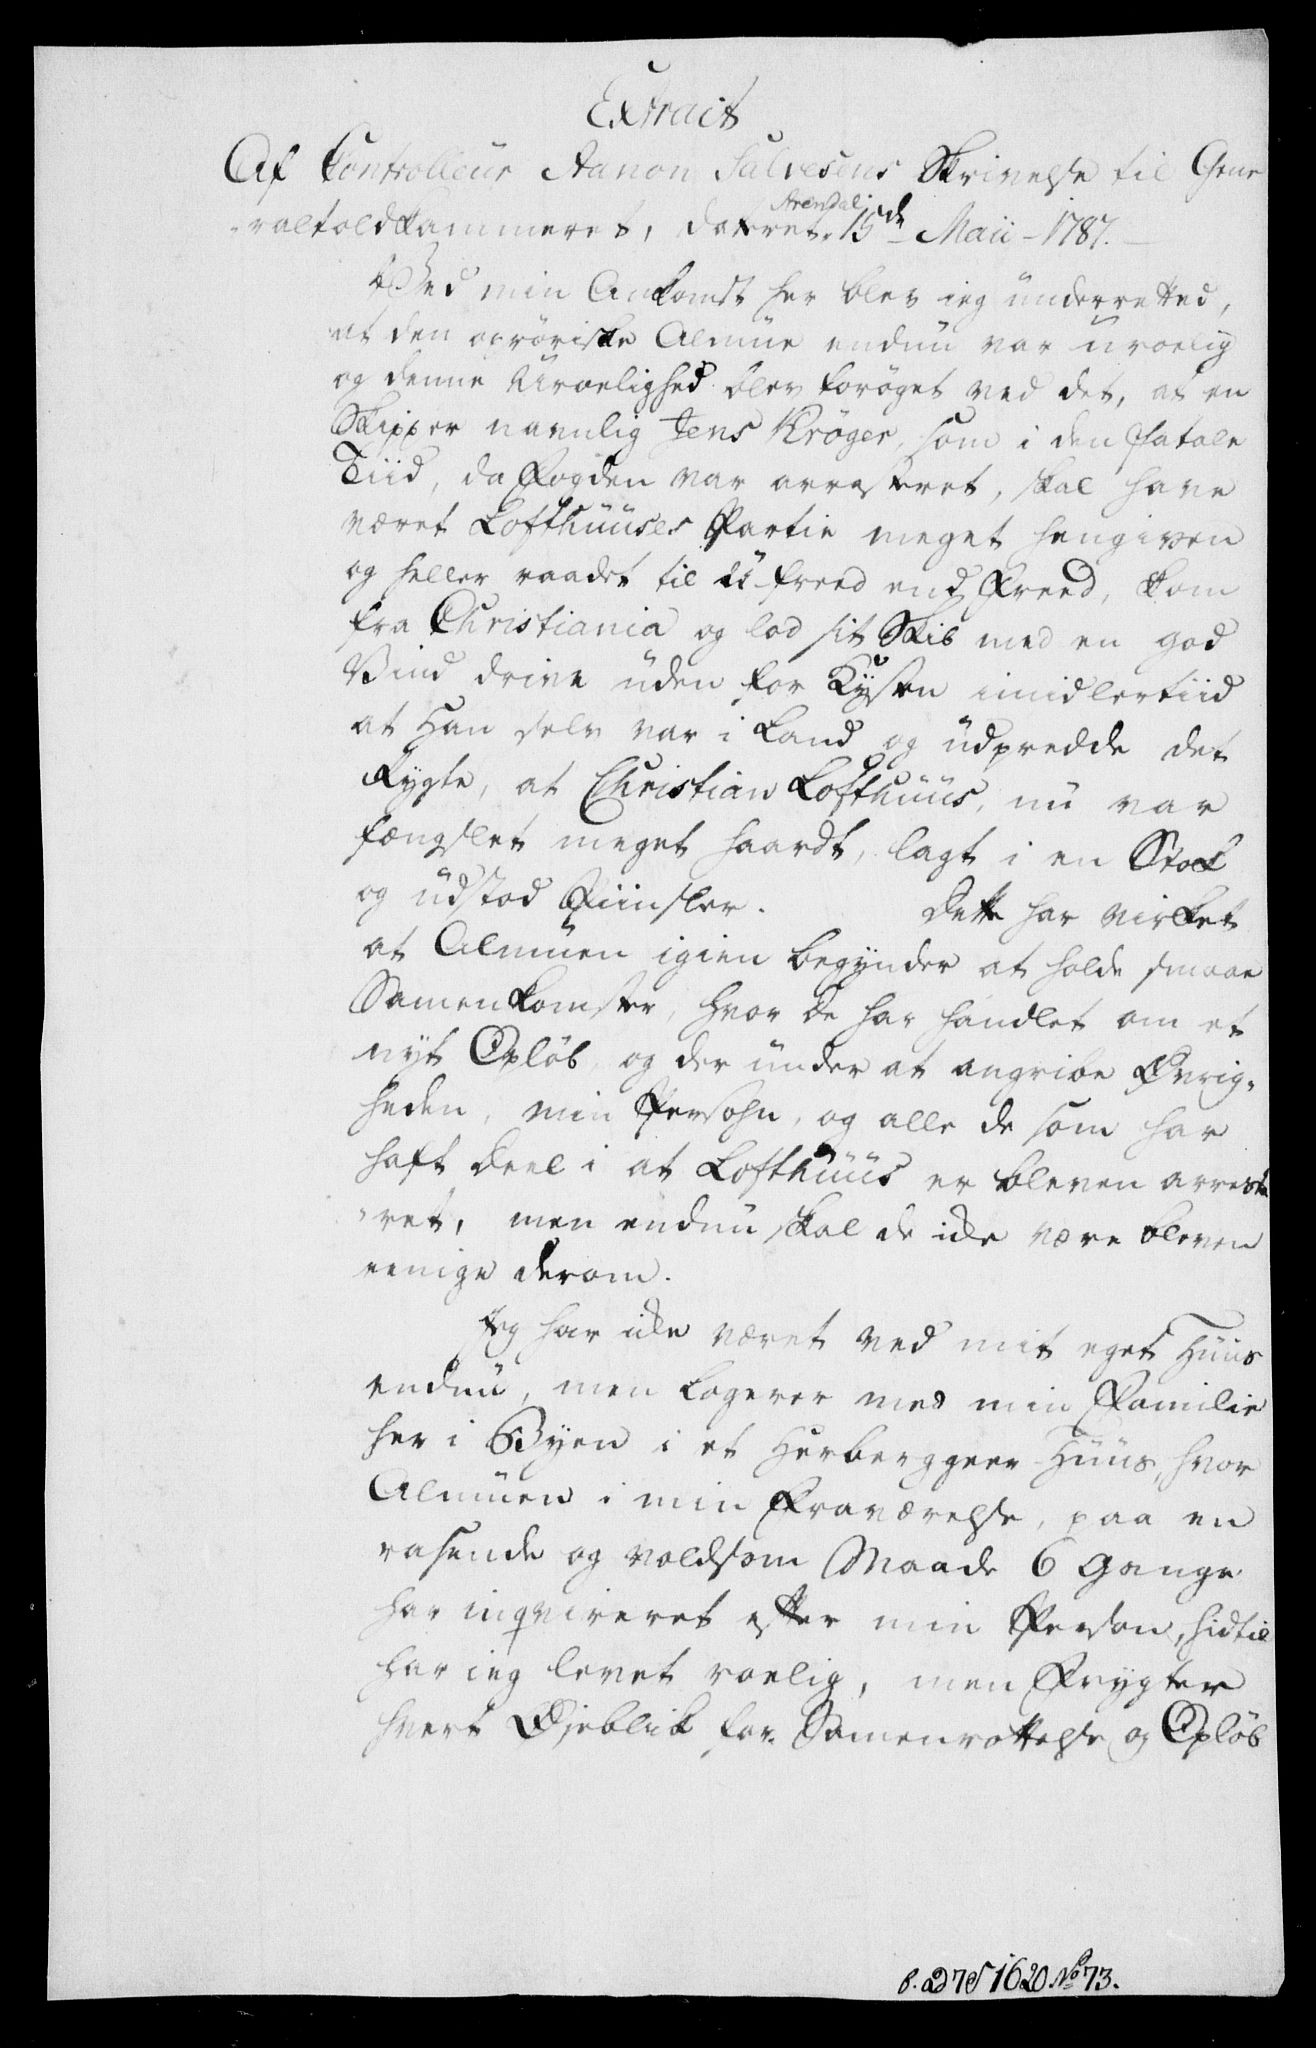 Extrait
Af Kontrolleur Aanon Salvesens Skrivelse til Gene
raltoldkammeret, dateret Arendal 15de Maii 1787.
Ved min Ankomst her blev ieg ünderretted,
at den opröriske Almüe endnü var üroelig
og denne Uroelighed blev forøget ved det, at en
Skipper navnlig Jens Krøger, som i den fatale
Tiid, da Fogden var arresteret, skal have
været Lofthuüses Partie meget hengiven
og heller raadet til üfreed end Freed, kom
fra Christiania og lod sit Skib med en god
Vind drive üden for Kÿsten imidlertiid
at Han selv var i Land og üdpredde det
Rygte, at Christian Lofthuüs, nü var
fængslet meget haardt, lagt i en Stok
og üdstod Piinsler. Dette har virket
at Almüen igien begÿnder at holde smaae
Samenkomster, hvor de har handlet om et
nÿt Opløb, og der ünder at angribe Øvrig-
heden, min Persohn, og alle de som har
haft Deel i at Lofthuüs er bleven arreste
ret, men endnü skal de ikke være bleven
eenige derom.
Jeg har ikke været ved mit eget Hüüs
endnü, men logerer med min Familie
her i Byen i et Herberggeer-Hüüs, hvor
Almüen i min Fraværelse, paa en
rasende og voldsom Maade 6 Gange
har inqvireret efter min Person, hidtil
har ieg levet roelig, men Frygter
hvert Øjeblik for Samenrottelse og Opløb
No 73.